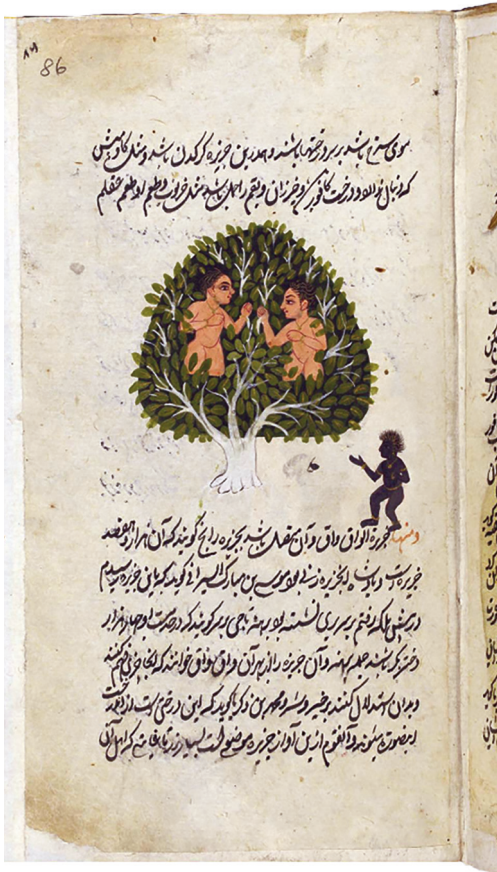 86
موی سرخ باشد بر درختها باشند و هم درین جزیره کرکدن باشد و مثل کاومیش
که دنبال و درخت کافور و خیزران و بقم باشد مثل خرنوب و طعم او طعم علقم
ومنها جزیرة الواق واق و آن متصل باشد بجزیره رابج گویند که آن هزار و هفتصد
جزیره است و پادشاه این جزیره زنی بود موسی بن مبارک السیرافی گوید که باین جزیره رسیدم
در پیش ملکه رفتم بر سریری نشسته بود برهنه تاجی بر سر گویند که در خدمت او چهار هزار
دختر بکر باشند جمله برهنه و آن جزیره را از بهر آن واق واق خوانند که آنجا
و بدان استدلال کنند بر خیر و شر و محمد بن زکریا گوید که این درختی است
و آن قوم ازین آواز جزیره موضوع است زر تا بغایتی که اهل آن